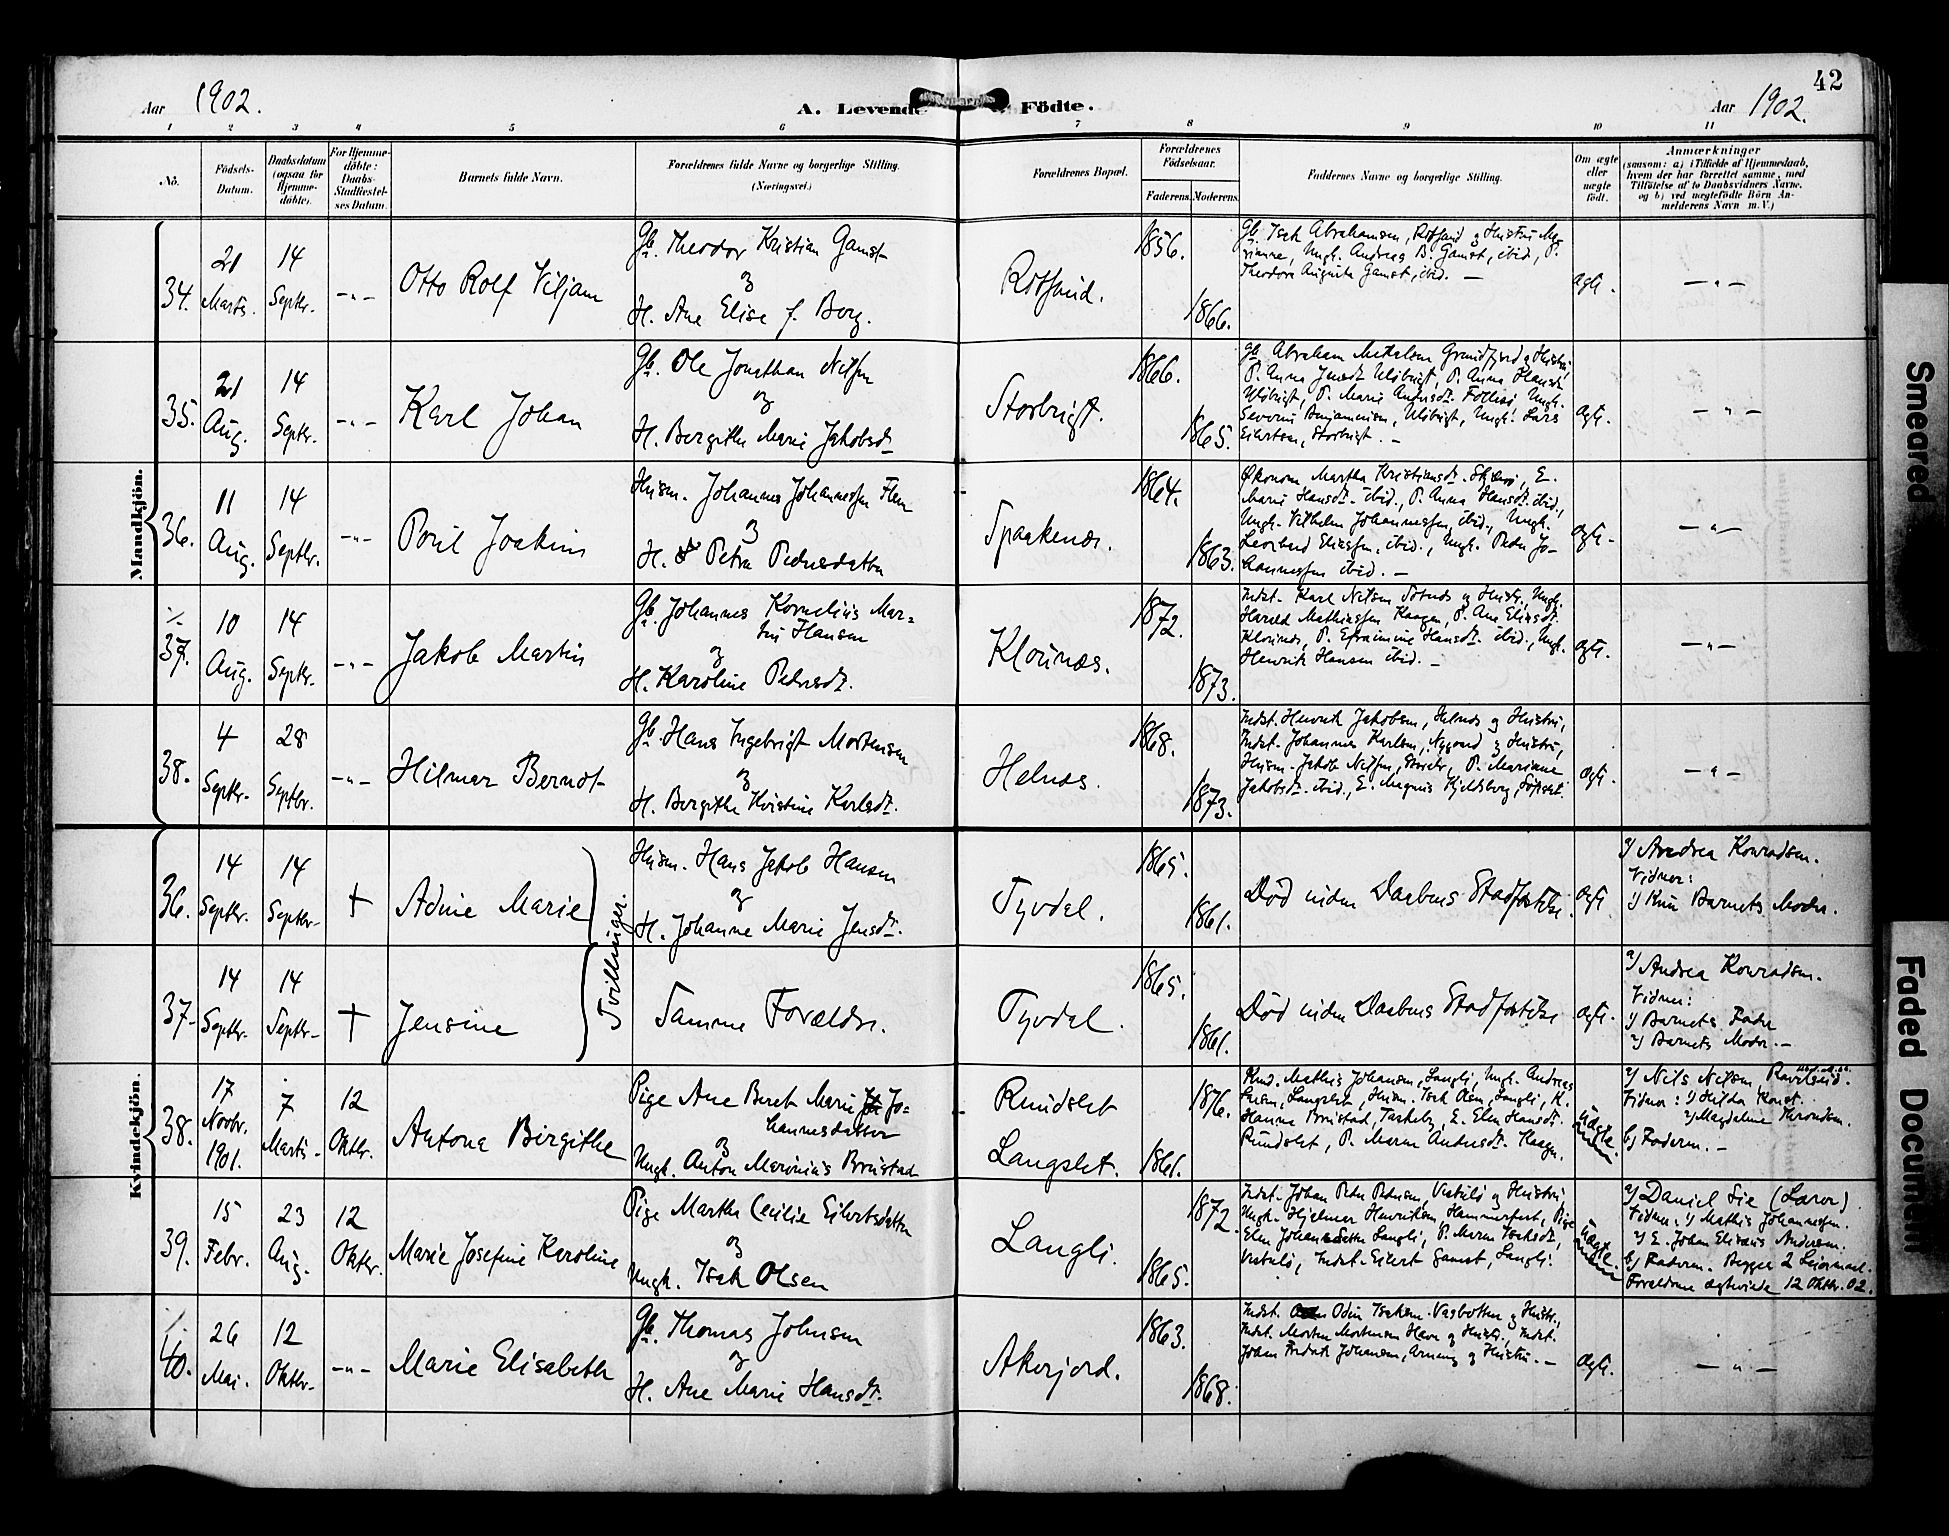 42
Aar 1902.
A. Levende Födte.
Aar 1902.
1 2 3 4 5 6 7 8 9 10 11
No.
Födsels-Datum.
Daabsdatum (ogsaa for Hjemme-döbte).
For Hjemme-döbte: Daabs-Stadfæstel-ses Datum.
Barnets fulde Navn.
Forældrenes fulde Navne og borgerlige Stilling.
(Næringsvei.)
Forældrenes Bopæl.
Forældrenes Födselsaar.
Faderens. Moderens.
Faddernes Navne og borgerlige Stilling.
Om ægte eller uægte födt.
Anmærkninger
(saasom: a) i Tilfælde af Hjemmedaab, hvem der har forrettet samme, med Tilföielse af to Daabsvidners Navne, og b) ved uægtefödte Börn An-melderens Navn m. V.)
Mandkjön.
34.
21 Marts.
14 Septbr.
-"-
Otto Rolf Viljam
Gb. Theodor Kristian Gamst
og
H. Ane Elise f. Borg.
Rotsund.
1856.
1866.
Gb. Isak Abrahamsen, Rotsund og Hustru Ma-
rianne, Ungk. Andreas B. Gamst, ibid, P.
Theodora Augusta Gamst, ibid. —
ægte.
-"-
35.
21 Aug.
14 Septbr.
-"-
Karl Johan
Gb. Ole Jonathan Nilsen
og
H. Bergithe Marie Jakobsdt.
Storbugt.
1866.
1865.
Gb. Abraham Mikalsen Grundfjord og Hustru,
P. Anna Jensdt. Ulöbugt, P. Anna Hansdt.
Ulöbugt, P. Marie Andersdt. Follesö, Ungk.
Severin Benjaminsen, Ulöbugt, Ungk. Lars
Eilertsen, Storbugt. —
ægte.
-"-
36.
11 Aug.
14 Septbr.
-"-
Poul Joakim
Husm. Johannes Johannessen
og
H. Petra Pedersdatter
Spaakenæs.
1864.
1863.
Økonom Martha Kristiansdt. Skjærvö, E.
Marie Hansdt. ibid., P. Anna Hansdt. ibid.,
Ungk. Vilhelm Johannessen, ibid., Ungk.
Leonhard Eliassen, ibid., Ungk. Peder Jo-
hannessen ibid. —
ægte.
-"-
37.
10 Aug.
14 Septbr.
-"-
Jakob Martin
Gb. Johannes Kornelius Mar-
tin Hansen
og
H. Karoline Pedersdt.
Klounæs.
1872.
1873.
Indst. Karl Nilsen og Hustr., Ungk.
Harald Mathiassen Kaagen, P. Ane Eliasdt.
Klounæs, P. Efraimine Hansdt. ibid., Ungk.
Henrik Hansen ibid. —
ægte.
-"-
38.
4 Septbr.
28 Septbr.
-"-
Hilmar Berndt
Gb. Hans Ingebrigt Mortensen
og
H. Bergithe Kristine Karlsdt.
Helnæs.
1868.
1873.
Indst. Henrik Jakobsen, Helnæs og Hustru,
Indst. Johannes Karlsen, Nygaard og Hustru,
Husm. Jakob Nilsen, Storslet, P. Mariane
Jakobsdt. ibid., E. Magnus Kjeldsberg,
ægte.
-"-
Kvindekjön.
36.
14 Septbr.
14 Septbr.
+
Adine Marie
Tvillinger.
Husm. Hans Jakob Hansen
og
H. Johanne Marie Jensdt.
Tyvdal.
1865.
1861.
Död inden Daabens Stadfæstelse.
ægte.
a) Andrea Konradsen.
Vidner:
1) Kun Barnets Moder.
37.
14 Septbr.
14 Septbr.
+
Jensine
Samme Forældre.
Tyvdal.
1865.
1861.
Död inden Daabens Stadfæstelse
ægte.
a) Andrea Konradsen.
Vidner:
1) Barnets Fader
2) Barnets Moder. —
38.
17 Novbr. 1901.
7 Marts.
12 Oktbr.
Antona Birgithe
Pige Ane Beret Marie Jo-
hannesdatter
og
Ungk. Anton Maronius Brustad
Rundslet
Langslet.
1876.
1861.
Mathis Johansen, Langli, Ungk. Andreas
Langslet, Husm. Isak Olsen, Langli, K.
Hanna Brustad, E. Elen Hansdt.
Rundslet, P. Maren Andersdt. Kaagen.
uægte
a) Nils Nilsen,
Vidner: 1) Hilda
2) Magdeline
b) Faderen. —
39.
15 Febr.
23 Aug.
12 Oktbr.
Marie Josefine Karoline
Pige Martha Cecilie Eilertsdatter
og
Ungk. Isak Olsen
Langli.
1872.
1865.
Indst. Johan Peder Pedersen, og Hustru,
Ungk. Hjalmar Henriksen, Hammerfest, Pige
Elen Langli, P. Maren Isaksdt.,
Indst. Eilert Gamst, Langli.
uægte
a) Daniel Lie (Lærer)
Vidner: 1) Mathis Johannessen.
2) E. Johan Elisæus Andersen.
b) Faderen. Begges 2 Leiermaal.
Forældrene ægteviede 12 Oktbr. 02.
40.
26 Mai.
12 Oktbr.
-"-
Marie Elisabeth
Gb. Thomas Johnsen
og
H. Ane Marie Hansdt.
Akerjord.
1863.
1868.
Indst. Odin Isaksen Vagbotten og Hustr.,
Indst. Morten Mortensen Havn og Hustr., Indst.
Johan Fredrik Johansen, og Hustru. —
ægte.
-"-
Smeared
Faded Document